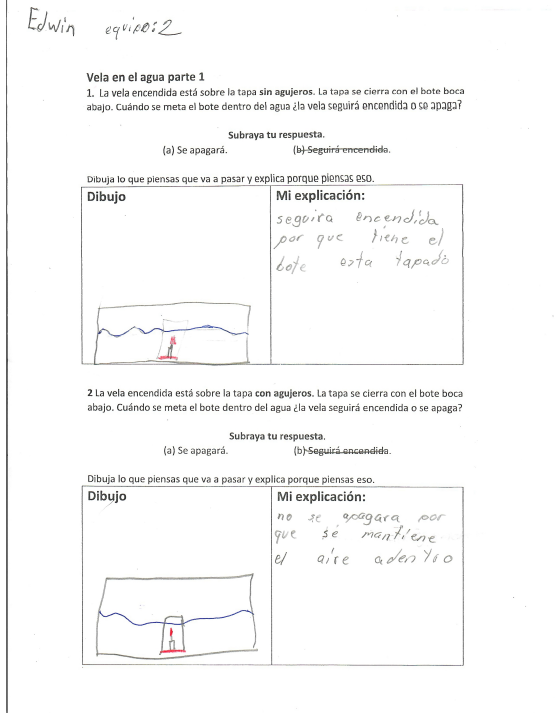 Edwin equipo: 2
Vela en el agua parte 1
1. La vela encendida está sobre la tapa sin agujeros. La tapa se cierra con el bote boca
abajo. Cuándo se meta el bote dentro del agua ¿la vela seguirá encendida o se apaga?
Subraya tu respuesta.
(a) Se apagará. (b) Seguirá encendida.
Dibuja lo que piensas que va a pasar y explica porque piensas eso.
Dibujo Mi explicación:
seguira encendida
por que tiene el
bote esta tapado
2 La vela encendida está sobre la tapa con agujeros. La tapa se cierra con el bote boca
abajo. Cuándo se meta el bote dentro del agua ¿la vela seguirá encendida o se apaga?
Subraya tu respuesta.
(a) Se apagará. (b) Seguirá encendida.
Dibuja lo que piensas que va a pasar y explica porque piensas eso.
Dibujo Mi explicación:
no se apagara por
que se mantiene
el aire adentro